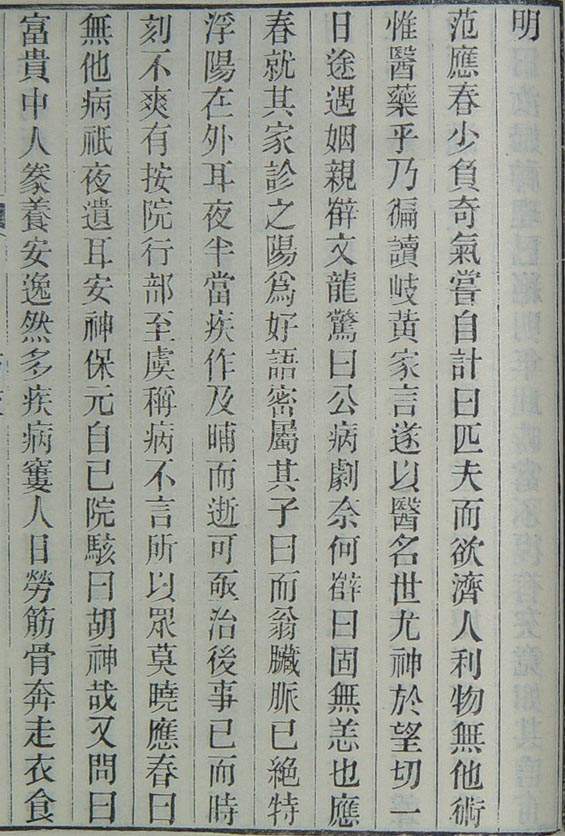 明
范應春少負奇氣嘗自計曰匹夫而欲濟人利物無他術
惟醫藥乎乃徧讀岐黃家言遂以醫名世尤神於望切一
日途遇姻親薛文龍驚曰公病劇奈何薛曰固無恙也應
春就其家診之陽爲好語密屬其子曰而翁臟脈已絶特
浮陽在外耳夜半當疾作及晡而逝可亟治後事已而時
刻不爽有按院行部至虞稱病不言所以眾莫曉應春曰
無他病祇夜遺耳安神保元自已院駭曰胡神哉又問曰
富貴中人豢養安逸然多疾病窶人日勞筋骨奔走衣食